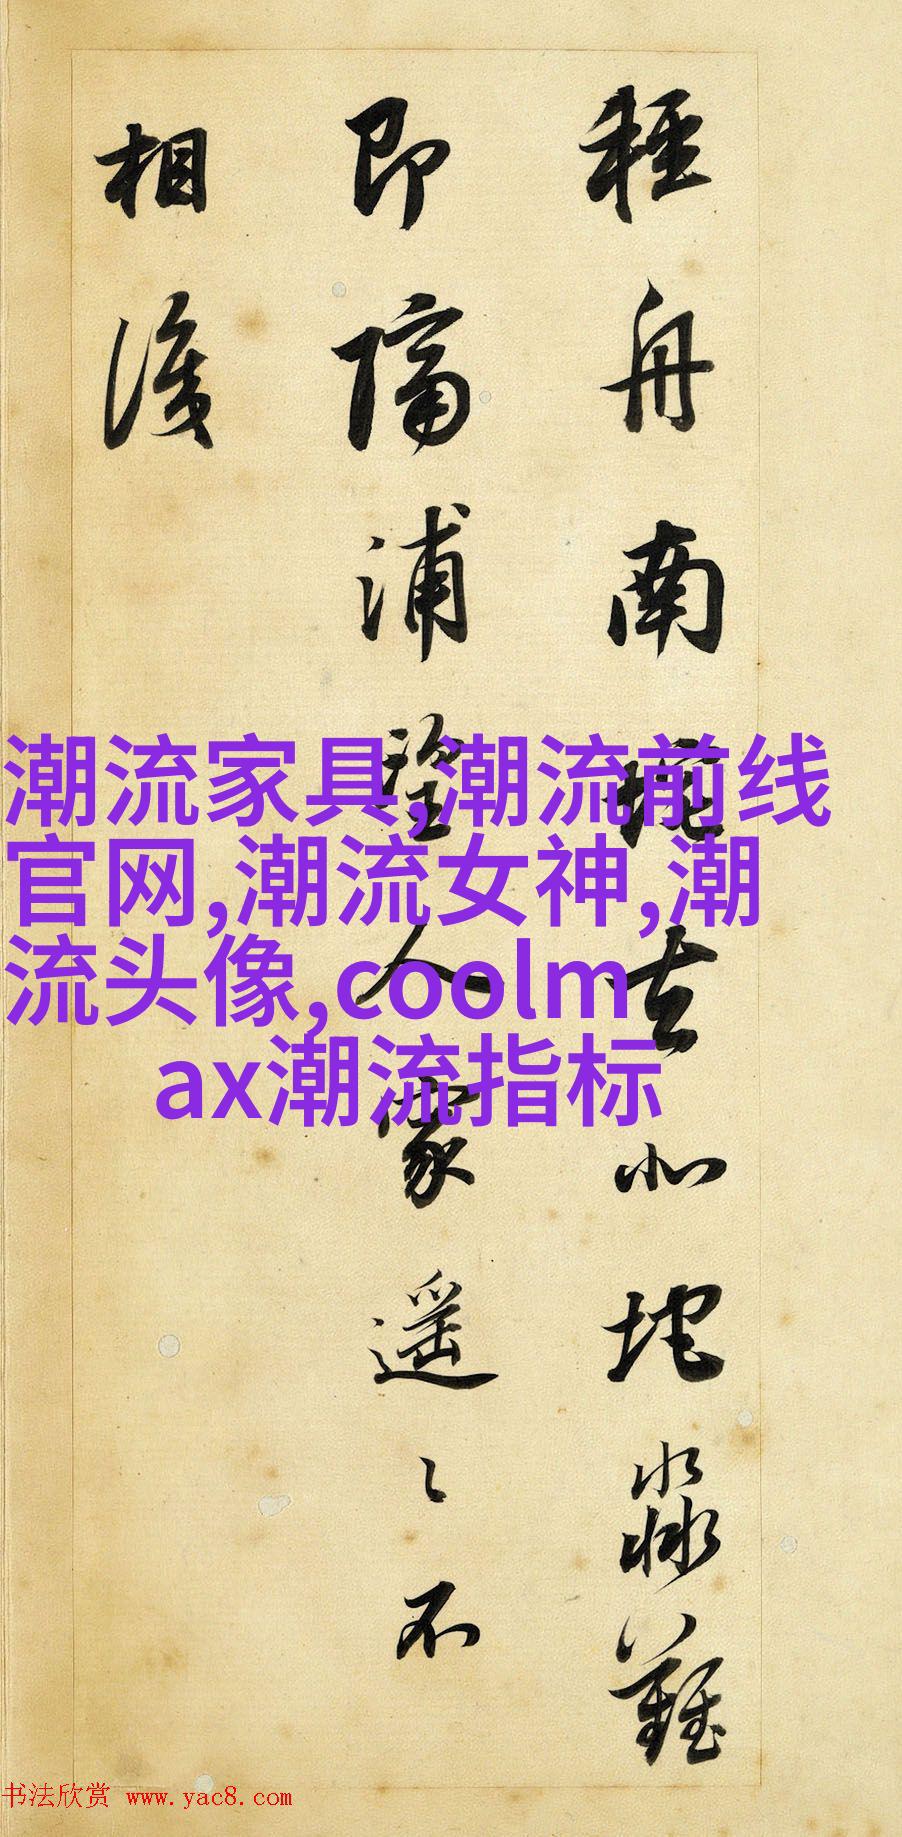 輕舟南垞去北垞淼難
即隔浦望人家遥〻不
相識
潮流家具,潮流前线
官网,潮流女神,潮
流头像,coolm
ax潮流指标
书法欣赏 www.yac8.com